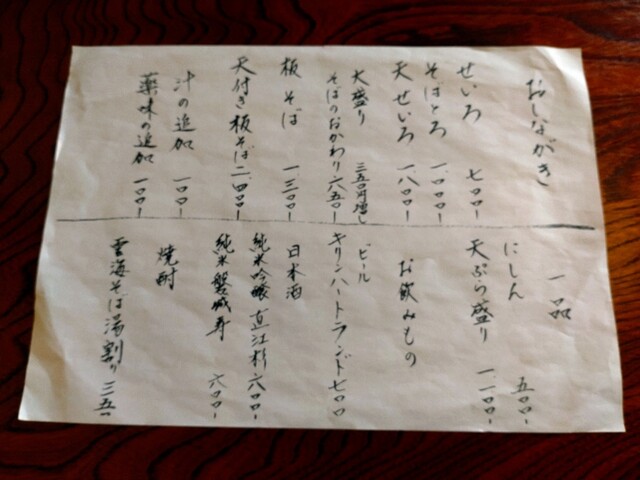 おしながき
せいろ 七〇〇-
そばとろ 一、〇〇〇-
天せいろ 一、八〇〇-
大盛り 三五〇円増し
そばのおかわり 六五〇-
板そば 一、三〇〇-
天付き板そば 二、四〇〇-
汁の追加 一〇〇-
薬味の追加 一〇〇-
一品
にしん 五〇〇-
天ぷら盛り 一、一〇〇-
お飲みもの
ビール
キリンハートランド 七〇〇
日本酒
純米吟醸 直江杉 六〇〇-
純米 磐城寿 六〇〇-
焼酎
雲海そば湯割り 三五〇-